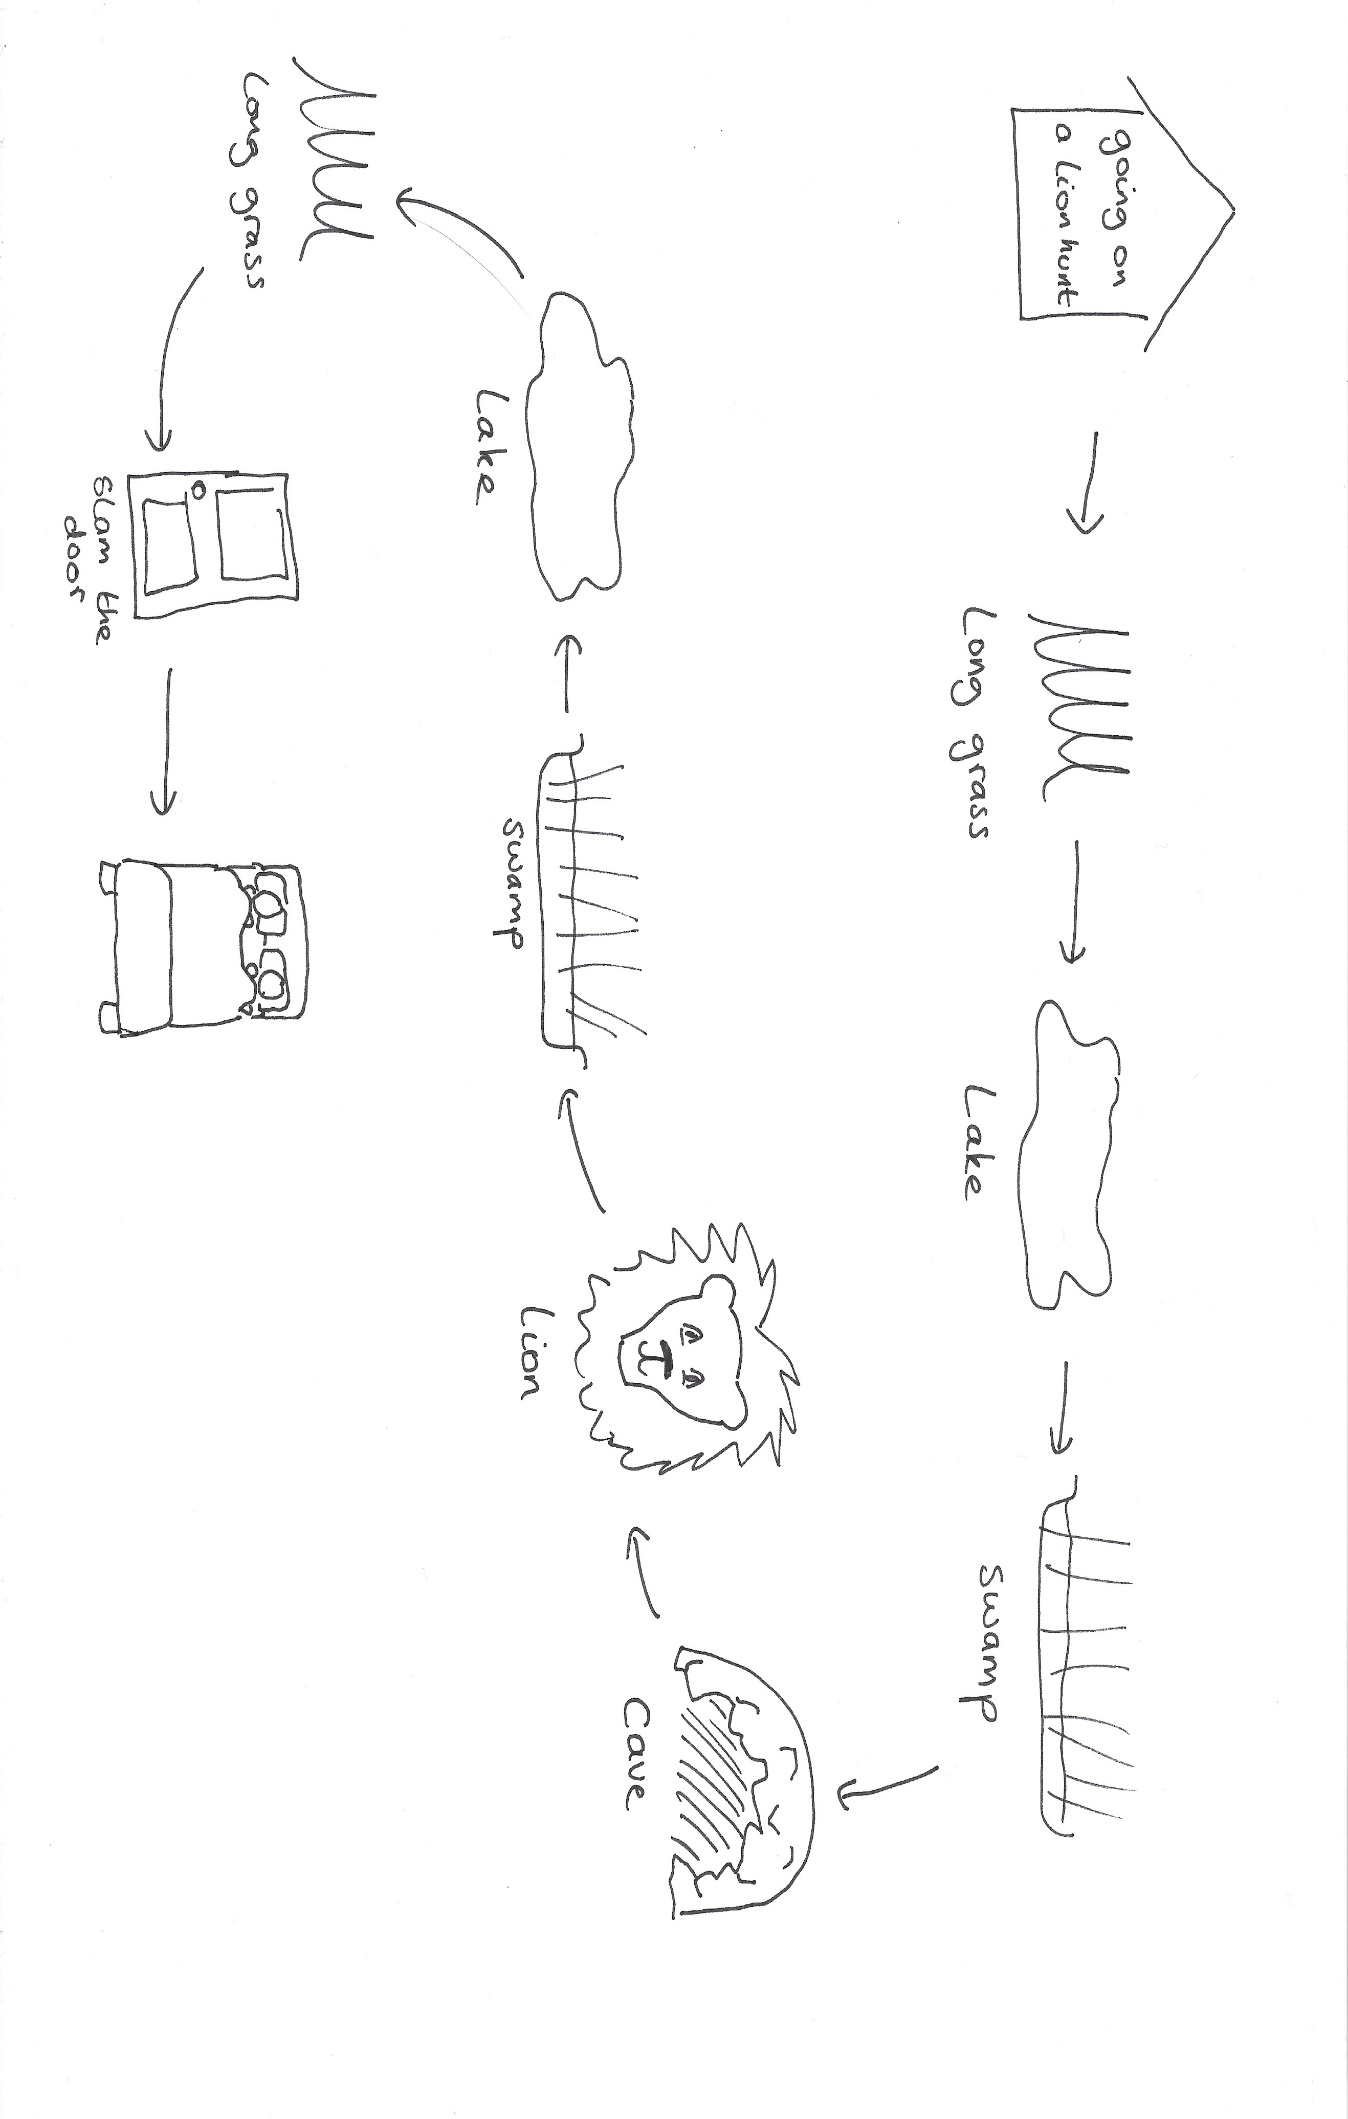 going on
a Lion hunt
Long grass
Lake
Swamp
Cave
Lion
Swamp
Lake
Long grass
Slam the
door